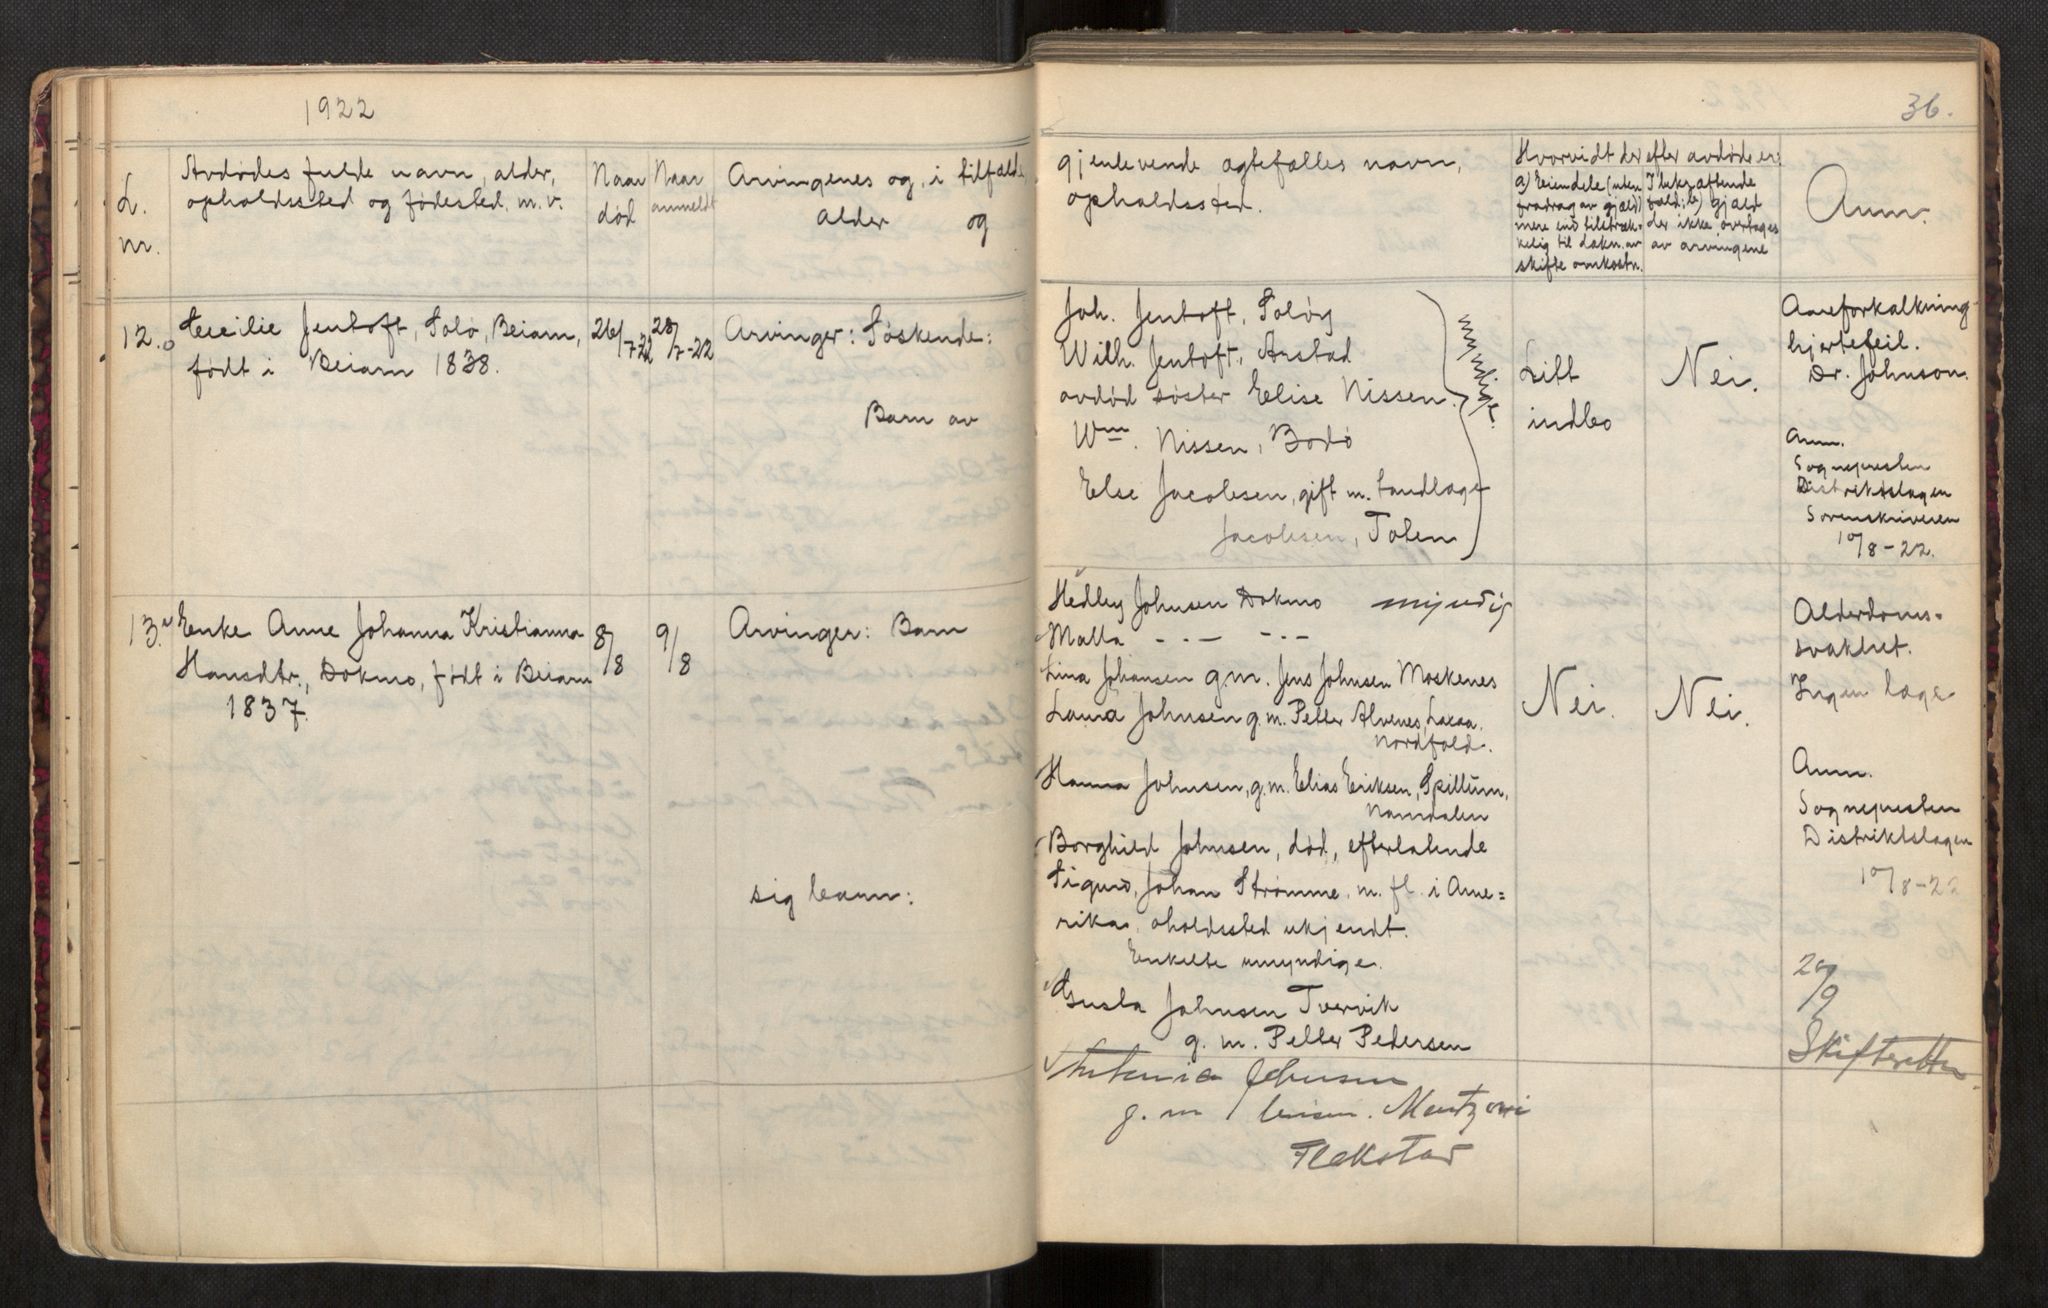 1922
36.
L. nr.
Avdødes fulde navn, alder,
opholdssted og fødested m. v.
Naar død
Naar anmeldt
Arvingenes og, i tilfælde,
alder og
gjenlevende egtefælles navn,
opholdssted.
Hvorvidt der efter avdøde er:
a) Eiendele (uten
fradrag av gjæld)
mere end tilstræk-
kelig til dækn. av
skifte omkostn.
I bekræftende
fald: b) gjæld
der ikke overtages
av arvingene
Anm.
12. Cecilie Jentoft, Solø, Beiarn,
født i Beiarn 1838.
26/7-22
28/7-22
Arvinger: Søskende:
Barn av
Joh. Jentoft, Soløy
Wilh. Jentoft, Arstad
avdød søster Elise Nissen.
Wm. Nissen, Bodø
Else Jacobsen, gift m. tandlæge
Jacobsen, Toten
myndige.
Litt
indbo
Nei.
Aareforkalkning
hjertefeil.
Dr. Johnson.
Anm.
Sognepresten
Distriktslægen
Sorenskriveren
10/8-22.
13. Enke Anne Johanna Kristianna
Hansdtr., Dokmo, født i Beiarn
1837.
8/8
9/8
Arvinger: Barn
sig barn:
Hedley Johnsen Dokmo myndig
Malla -.- -.-
Lina Johansen g.m. Jens Johnsen Moskenes
Laura Johnsen g.m. Petter Alvenes,
Nordfold.
Hanna Johnsen, g.m. Elias Eriksen, Spillum,
Namdalen
Borghild Johnsen, død, efterlatende
Sigurd, Johan Strømme, m. fl. i Ame=
rika, oholdssted ukjendt.
Enkelte umyndige.
Gusta Johnsen Tvervik
g. m. Petter Pedersen
Antonia Johnsen
g. m Mentzoni
Flekstad
Nei.
Nei.
Alderdoms=
svakhet.
Ingen læge
Anm.
Sognepresten
Distriktslægen
10/8-22
20/9
Skifteretten